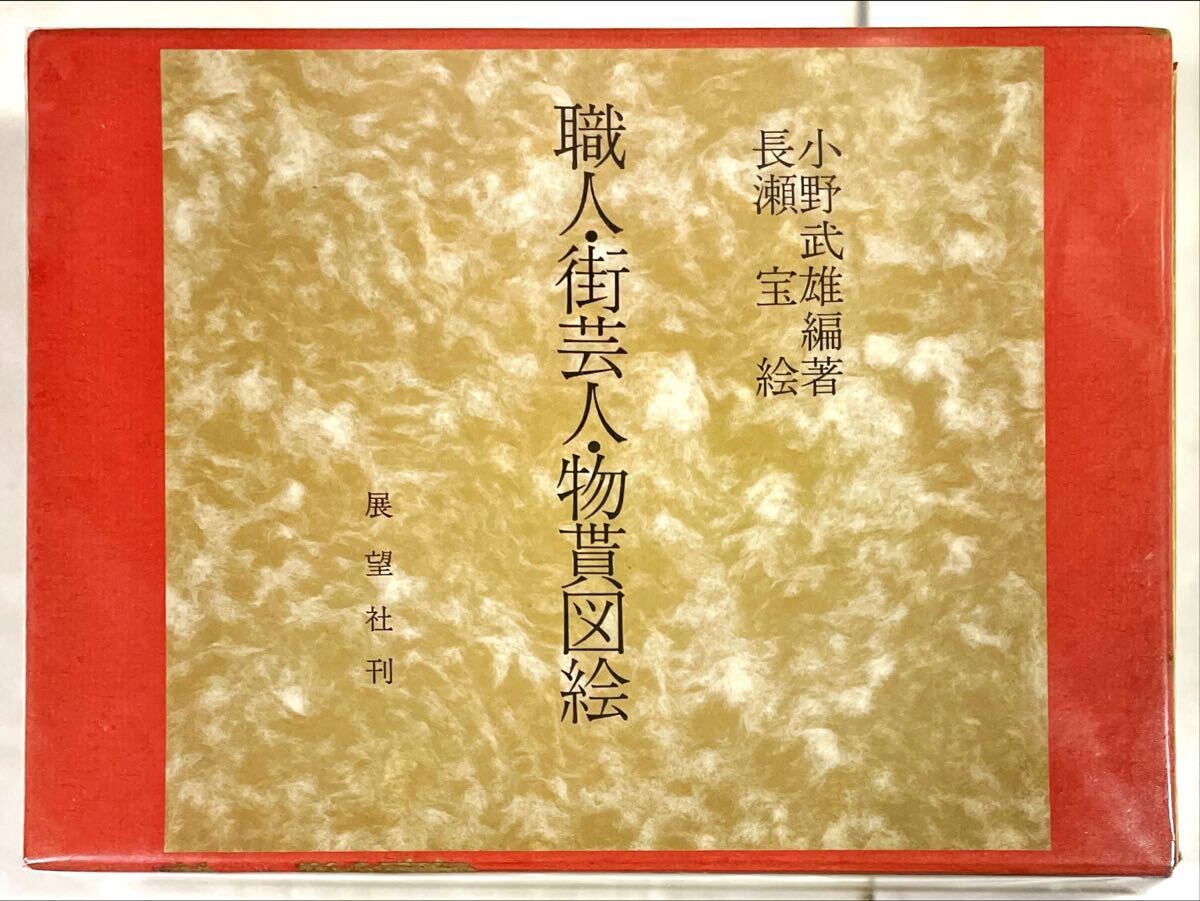 小野武雄編著
長瀬 宝 絵
職人・街芸人・物貰図絵
展望社刊